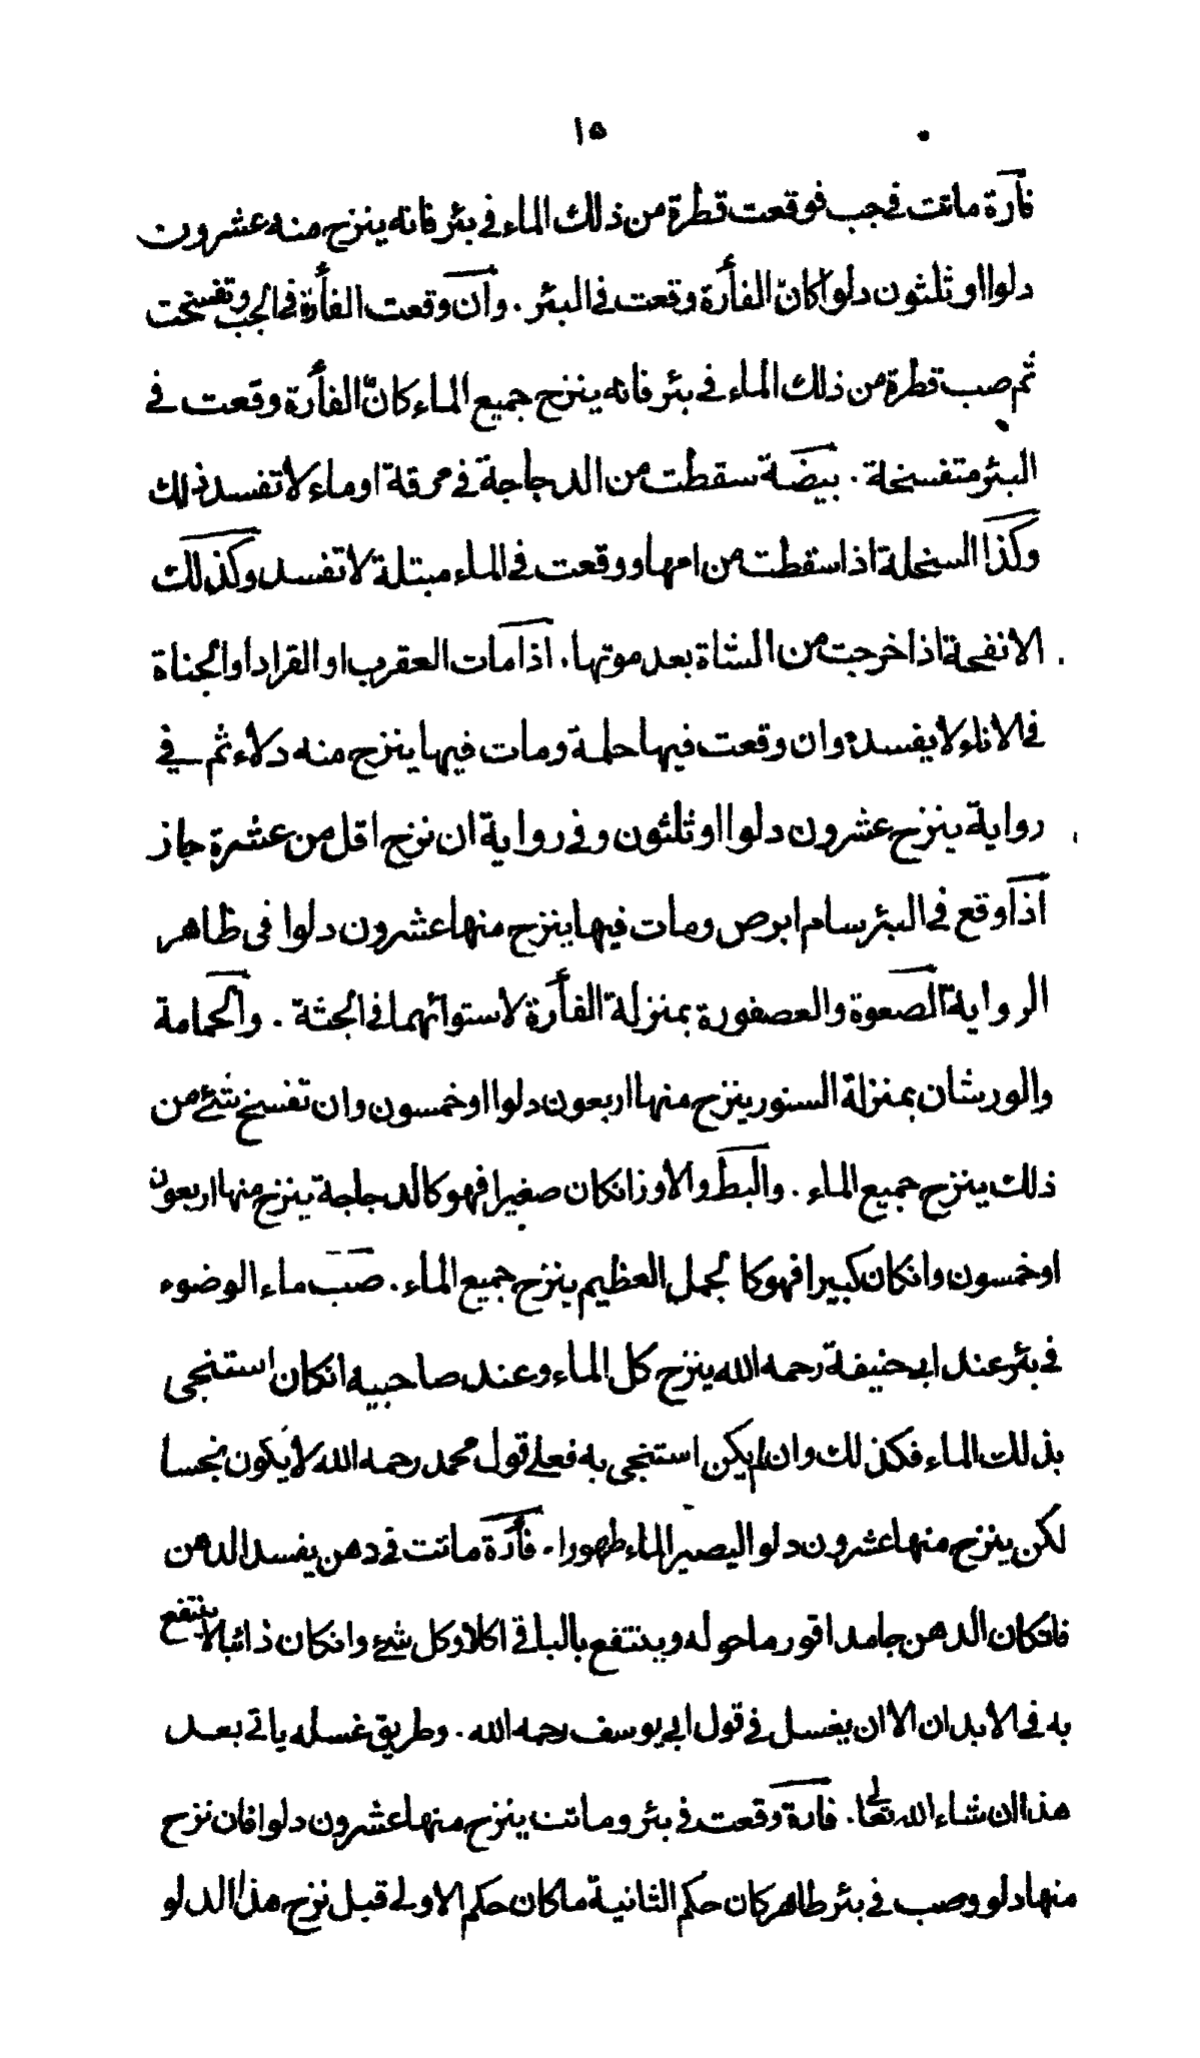 ١٥
فأرة ماتت في جب فوقعت قطرة من ذلك الماء في بئر فانه ينزح منه عشرون
دلوا او ثلثون دلوا كانّ الفأرة وقعت في البئر . وان وقعت الفأرة في الجب وتفسخت
ثم صب قطرة من ذلك الماء في بئر فانه ينزح جميع الماء كانّ الفأرة وقعت في
البئر متفسخة . بيضة سقطت من الدجاجة في مرقة او ماء لا تفسد ذلك
وكذا السخلة اذا سقطت من امها ووقعت في الماء مبتلة لا تفسد وكذلك
الانفحة اذا خرجت من الشاة بعد موتها . اذا مات العقرب او القراد او الجناة
في الاناء لا يفسده وان وقعت فيها حلمة ومات فيها ينزح منه دلاء ثم في
رواية ينزح عشرون دلوا او ثلثون وفي رواية ان نزح اقل من عشرة جاز
اذا وقع في البئر سام ابرص ومات فيها ينزح منها عشرون دلوا فى ظاهر
الرواية الصعوة والعصفورة بمنزلة الفأرة لاستوائهما في الجثة . والحمامة
والورشان بمنزلة السنور ينزح منها اربعون دلوا او خمسون وان تفسخ شئ من
ذلك ينزح جميع الماء . والبط والاوز انكان صغيرا فهو كالدجاجة ينزح منها اربعون
او خمسون وانكان كبيرا فهو كالجمل العظيم ينزح جميع الماء . صب ماء الوضوء
في بئر عند ابي حنيفة رحمه الله ينزح كل الماء وعند صاحبيه انكان استنجى
بذلك الماء فكذلك وان لم يكن استنجى به فعلى قول محمد رحمه الله لا يكون نجسا
لكن ينزح منها عشرون دلوا ليصير الماء طهورا . فأرة ماتت في دهن يفسد الدهن
فانكان الدهن جامدا قور ما حوله وينتفع بالباقي اكلا وكل شئ وانكان ذائبا لا ينتفع
به في الابدان الا ان يغسل في قول ابي يوسف رحمه الله . وطريق غسله ياتي بعد
هذا ان شاء الله تعالى . فارة وقعت في بئر وماتت ينزح منها عشرون دلوا فان نزح
منها دلو وصب في بئر طاهر كان حكم الثانية ما كان حكم الاولى قبل نزح هذا الدلو